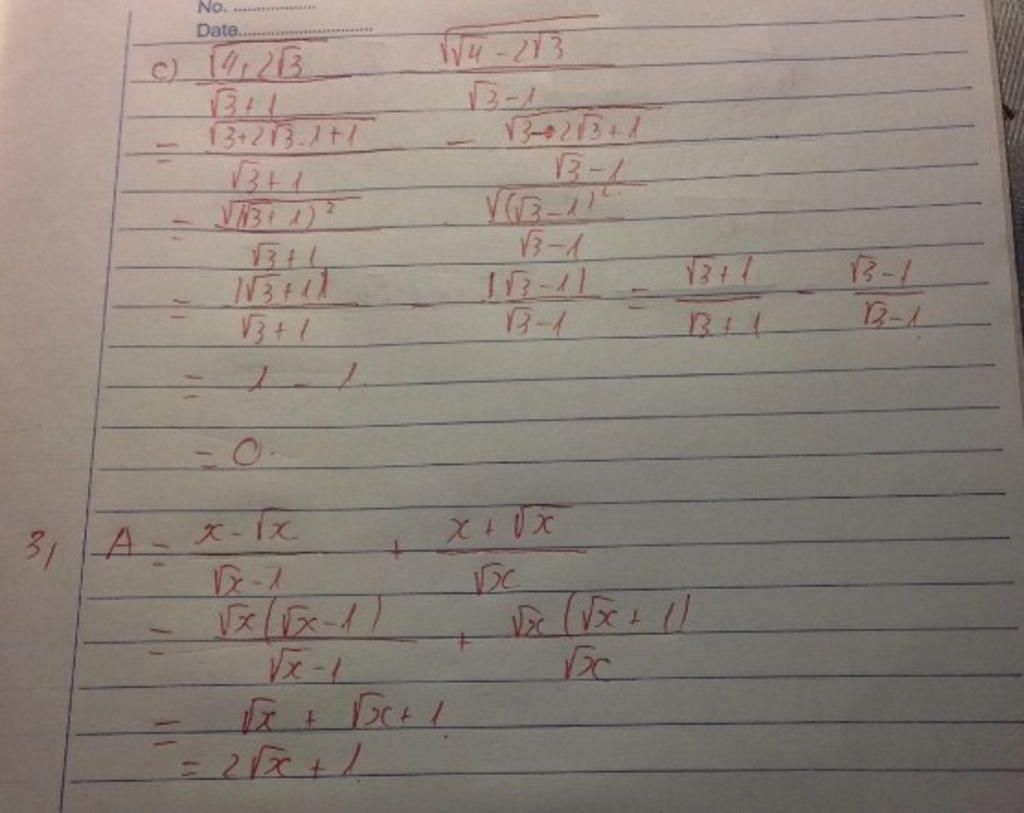 No. ..................
Date..............................
c) √4+2√3 / √3+1    √√4-2√3 / √3-1
= √3+2√3.1+1 / √3+1 - √3-2√3+1 / √3-1
= √(√3+1)² / √3+1    √(√3-1)² / √3-1
= |√3+1| / √3+1 - |√3-1| / √3-1 = √3+1 / √3+1 - √3-1 / √3-1
= 1 - 1
= 0.
3, A = x-√x / √x-1 + x+√x / √x
= √x(√x-1) / √x-1 + √x(√x+1) / √x
= √x + √x+1
= 2√x+1